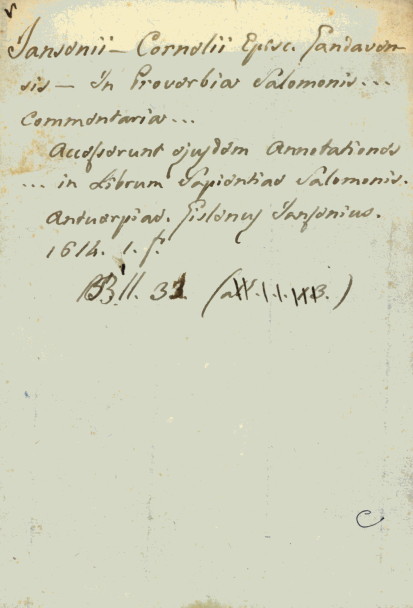 Jansenii – Cornelii Episc. Gandaven-
sis – In Proverbia Salomonis...
Commentaria...
Accesserunt ejusdem Annotationes
... in Librum Sapientiae Salomonis.
Antuerpiae. Gislenus Jansenius.
1614. 1. f.
BB. II.